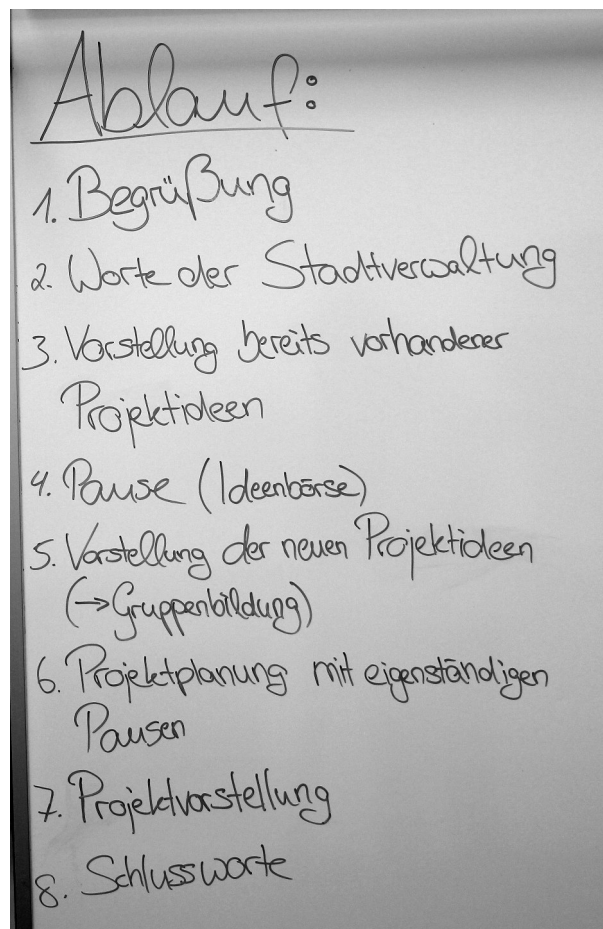 Ablauf:
1. Begrüßung
2. Worte der Stadtverwaltung
3. Vorstellung bereits vorhandener
Projektideen
4. Pause (Ideenbörse)
5. Vorstellung der neuen Projektideen
(→Gruppenbildung)
6. Projektplanung mit eigenständigen
Pausen
7. Projektvorstellung
8. Schlussworte